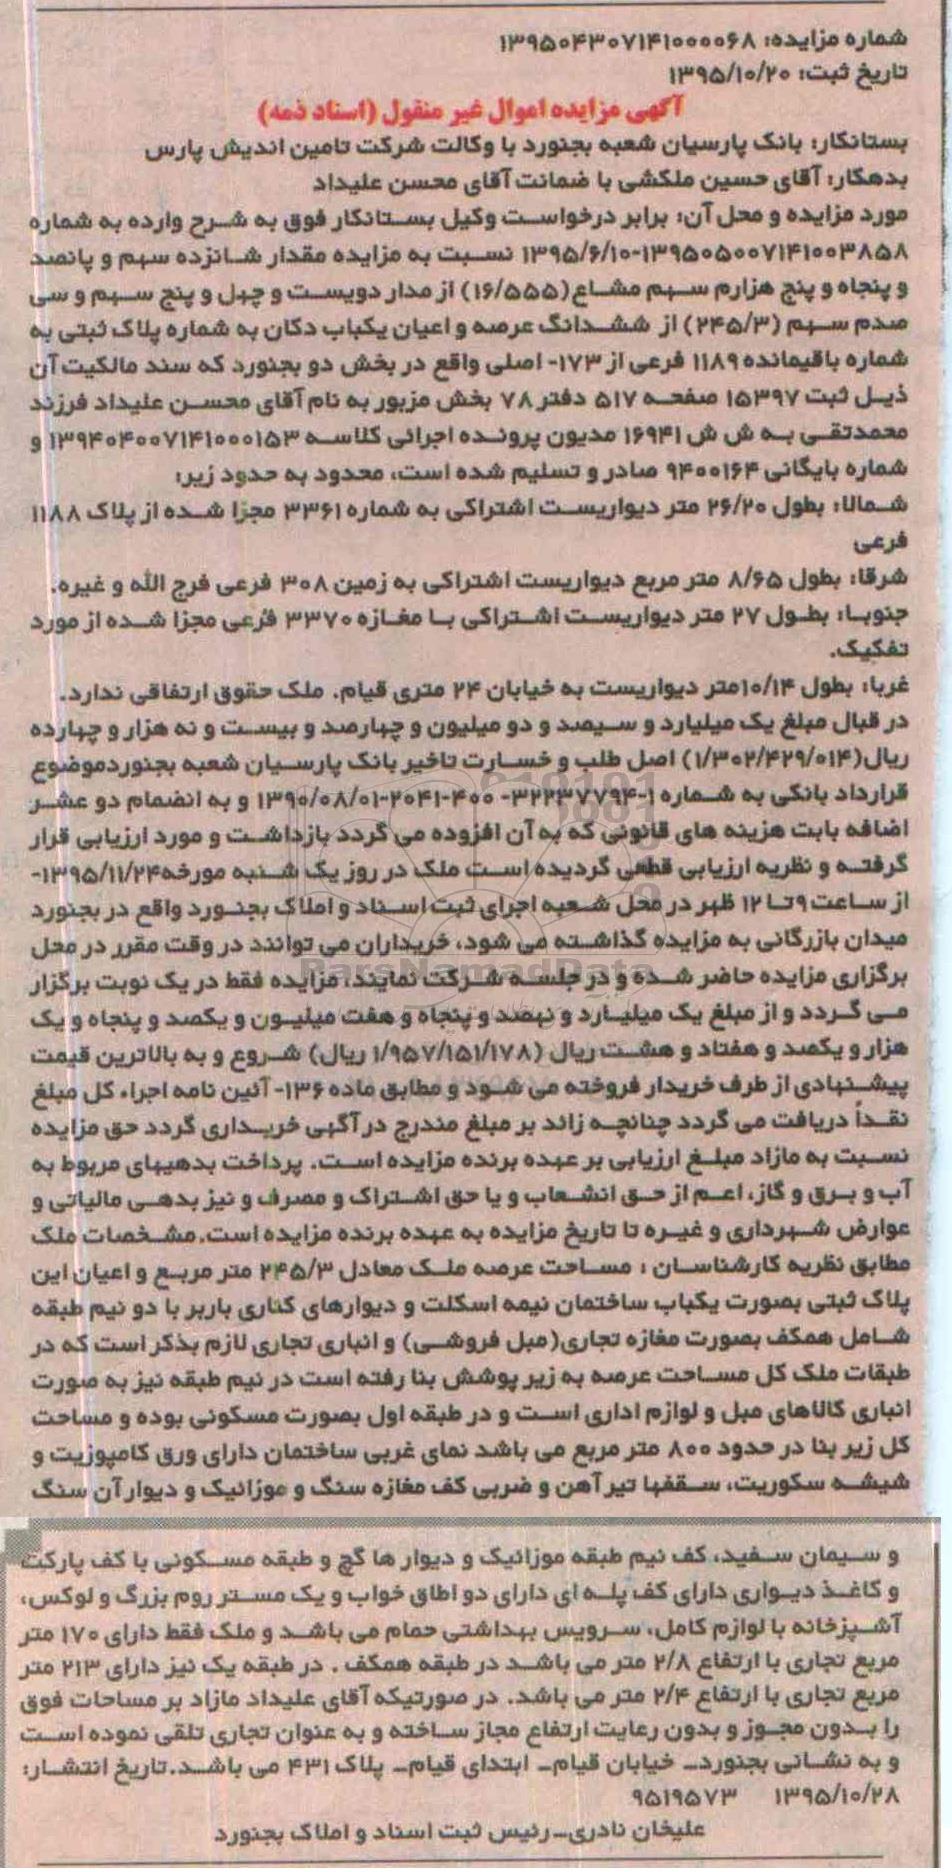 شماره مزایده: ۱۳۹۵۰۴۳۰۷۱۴۱۰۰۰۰۶۸
تاریخ ثبت: ۱۳۹۵/۱۰/۲۰
آگهی مزایده اموال غیر منقول (اسناد ذمه)
بستانکار: بانک پارسیان شعبه بجنورد با وکالت شرکت تامین اندیش پارس
بدهکار: آقای حسین ملکشی با ضمانت آقای محسن علیداد
مورد مزایده و محل آن: برابر درخواست وکیل بستانکار فوق به شرح وارده به شماره
۱۳۹۵/۶/۱۰-۱۳۹۵۰۵۰۰۷۱۴۱۰۰۳۸۵۸ نسبت به مزایده مقدار شانزده سهم و پانصد
و پنجاه و پنج هزارم سهم مشاع(۱۶/۵۵۵) از مدار دویست و چهل و پنج سهم و سی
صدم سهم (۲۴۵/۳) از ششدانگ عرصه و اعیان یکباب دکان به شماره پلاک ثبتی به
شماره باقیمانده ۱۱۸۹ فرعی از ۱۷۳- اصلی واقع در بخش دو بجنورد که سند مالکیت آن
ذیل ثبت ۱۵۳۹۷ صفحه ۵۱۷ دفتر ۷۸ بخش مزبور به نام آقای محسن علیداد فرزند
محمدتقی به ش ش ۱۶۹۴۱ مدیون پرونده اجرائی کلاسه ۱۳۹۴۰۴۰۰۷۱۴۱۰۰۰۱۵۳ و
شماره بایگانی ۹۴۰۰۱۶۴ صادر و تسلیم شده است، محدود به حدود زیر:
شمالا: بطول ۲۶/۲۰ متر دیواریست اشتراکی به شماره ۳۳۶۱ مجزا شده از پلاک ۱۱۸۸
فرعی
شرقا: بطول ۸/۶۵ متر مربع دیواریست اشتراکی به زمین ۳۰۸ فرعی فرج الله و غیره.
جنوبا: بطول ۲۷ متر دیواریست اشتراکی با مغازه ۳۳۷۰ فرعی مجزا شده از مورد
تفکیک.
غربا: بطول ۱۰/۱۴متر دیواریست به خیابان ۲۴ متری قیام. ملک حقوق ارتفاقی ندارد.
در قبال مبلغ یک میلیارد و سیصد و دو میلیون و چهارصد و بیست و نه هزار و چهارده
ریال(۱/۳۰۲/۴۲۹/۰۱۴) اصل طلب و خسارت تاخیر بانک پارسیان شعبه بجنوردموضوع
قرارداد بانکی به شماره ۱-۳۲۲۳۷۷۹۴- ۴۰۰-۲۰۴۱-۱۳۹۰/۰۸/۰۱ و به انضمام دو عشر
اضافه بابت هزینه های قانونی که به آن افزوده می گردد بازداشت و مورد ارزیابی قرار
گرفته و نظریه ارزیابی قطعی گردیده است ملک در روز یک شنبه مورخه۱۳۹۵/۱۱/۲۴-
از ساعت ۹تا ۱۲ ظهر در محل شعبه اجرای ثبت اسناد و املاک بجنورد واقع در بجنورد
میدان بازرگانی به مزایده گذاشته می شود، خریداران می توانند در وقت مقرر در محل
برگزاری مزایده حاضر شده و در جلسه شرکت نمایند، مزایده فقط در یک نوبت برگزار
می گردد و از مبلغ یک میلیارد و نهصد و پنجاه و هفت میلیون و یکصد و پنجاه و یک
هزار و یکصد و هفتاد و هشت ریال (۱/۹۵۷/۱۵۱/۱۷۸ ریال) شروع و به بالاترین قیمت
پیشنهادی از طرف خریدار فروخته می شود و مطابق ماده ۱۳۶- آئین نامه اجراء کل مبلغ
نقداً دریافت می گردد چنانچه زائد بر مبلغ مندرج در آگهی خریداری گردد حق مزایده
نسبت به مازاد مبلغ ارزیابی بر عهده برنده مزایده است. پرداخت بدهیهای مربوط به
آب و برق و گاز، اعم از حق انشعاب و یا حق اشتراک و مصرف و نیز بدهی مالیاتی و
عوارض شهرداری و غیره تا تاریخ مزایده به عهده برنده مزایده است.مشخصات ملک
مطابق نظریه کارشناسان : مساحت عرصه ملک معادل ۲۴۵/۳ متر مربع و اعیان این
پلاک ثبتی بصورت یکباب ساختمان نیمه اسکلت و دیوارهای کناری باربر با دو نیم طبقه
شامل همکف بصورت مغازه تجاری(مبل فروشی) و انباری تجاری لازم بذکر است که در
طبقات ملک کل مساحت عرصه به زیر پوشش بنا رفته است در نیم طبقه نیز به صورت
انباری کالاهای مبل و لوازم اداری است و در طبقه اول بصورت مسکونی بوده و مساحت
کل زیر بنا در حدود ۸۰۰ متر مربع می باشد نمای غربی ساختمان دارای ورق کامپوزیت و
شیشه سکوریت، سقفها تیر آهن و ضربی کف مغازه سنگ و موزائیک و دیوار آن سنگ
و سیمان سفید، کف نیم طبقه موزائیک و دیوار ها گچ و طبقه مسکونی با کف پارکت
و کاغذ دیواری دارای کف پله ای دارای دو اطاق خواب و یک مستر روم بزرگ و لوکس،
آشپزخانه با لوازم کامل، سرویس بهداشتی حمام می باشد و ملک فقط دارای ۱۷۰ متر
مربع تجاری با ارتفاع ۲/۸ متر می باشد در طبقه همکف . در طبقه یک نیز دارای ۲۱۳ متر
مربع تجاری با ارتفاع ۲/۴ متر می باشد. در صورتیکه آقای علیداد مازاد بر مساحات فوق
را بدون مجوز و بدون رعایت ارتفاع مجاز ساخته و به عنوان تجاری تلقی نموده است
و به نشانی بجنورد- خیابان قیام- ابتدای قیام- پلاک ۴۳۱ می باشد.تاریخ انتشار:
۱۳۹۵/۱۰/۲۸ ۹۵۱۹۵۷۳
علیخان نادری-رئیس ثبت اسناد و املاک بجنورد
ParsNamadData